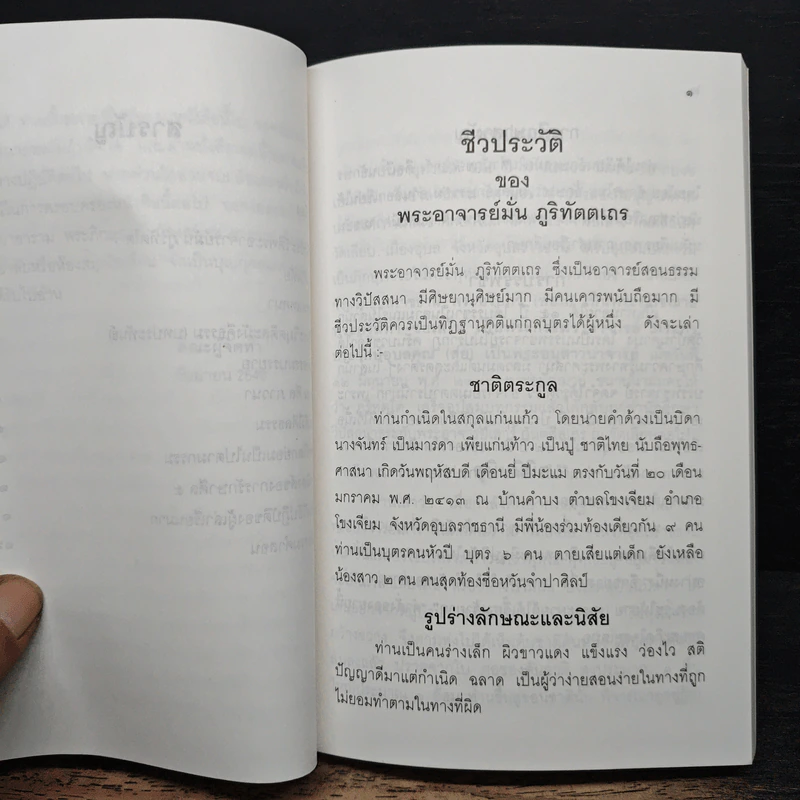 ๑
ชีวประวัติ
ของ
พระอาจารย์มั่น ภูริทัตตเถร
พระอาจารย์มั่น ภูริทัตตเถร ซึ่งเป็นอาจารย์สอนธรรม
ทางวิปัสสนา มีศิษยานุศิษย์มาก มีคนเคารพนับถือมาก มี
ชีวประวัติควรเป็นทิฏฐานุคติแก่กุลบุตรได้ผู้หนึ่ง ดังจะเล่า
ต่อไปนี้ :-
ชาติตระกูล
ท่านกำเนิดในสกุลแก่นแก้ว โดยนายคำด้วงเป็นบิดา
นางจันทร์ เป็นมารดา เพียแก่นท้าว เป็นปู่ ชาติไทย นับถือพุทธ-
ศาสนา เกิดวันพฤหัสบดี เดือนยี่ ปีมะแม ตรงกับวันที่ ๒๐ เดือน
มกราคม พ.ศ. ๒๔๑๓ ณ บ้านคำบง ตำบลโขงเจียม อำเภอ
โขงเจียม จังหวัดอุบลราชธานี มีพี่น้องร่วมท้องเดียวกัน ๙ คน
ท่านเป็นบุตรคนหัวปี บุตร ๖ คน ตายเสียแต่เด็ก ยังเหลือ
น้องสาว ๒ คน คนสุดท้องชื่อหวันจำปาศิลป์
รูปร่างลักษณะและนิสัย
ท่านเป็นคนร่างเล็ก ผิวขาวแดง แข็งแรง ว่องไว สติ
ปัญญาดีมาแต่กำเนิด ฉลาด เป็นผู้ว่าง่ายสอนง่ายในทางที่ถูก
ไม่ยอมทำตามในทางที่ผิด